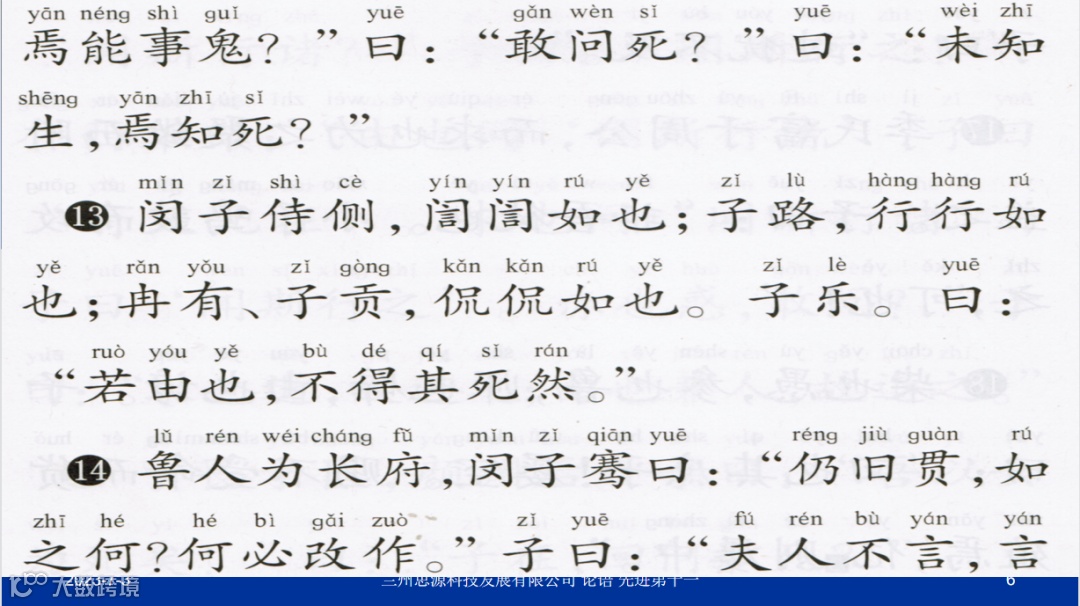 yān néng shì guǐ yuē gǎn wèn sǐ yuē wèi zhī
焉能事鬼？”曰：“敢问死？”曰：“未知
shēng yān zhī sǐ
生，焉知死？”
mǐn zǐ shì cè yín yín rú yě zǐ lù hàng hàng rú
13 闵子侍侧，訚訚如也；子路，行行如
yě rǎn yǒu zǐ gòng kǎn kǎn rú yě zǐ lè yuē
也；冉有、子贡，侃侃如也。子乐。曰：
ruò yóu yě bù dé qí sǐ rán
“若由也，不得其死然。”
lǔ rén wéi cháng fǔ mǐn zǐ qiān yuē réng jiù guàn rú
14 鲁人为长府，闵子骞曰：“仍旧贯，如
zhī hé hé bì gǎi zuò zǐ yuē fú rén bù yán yán
之何？何必改作。”子曰：“夫人不言，言
大数跨境
兰州思源科技发展有限公司 论语 先进第十一
6